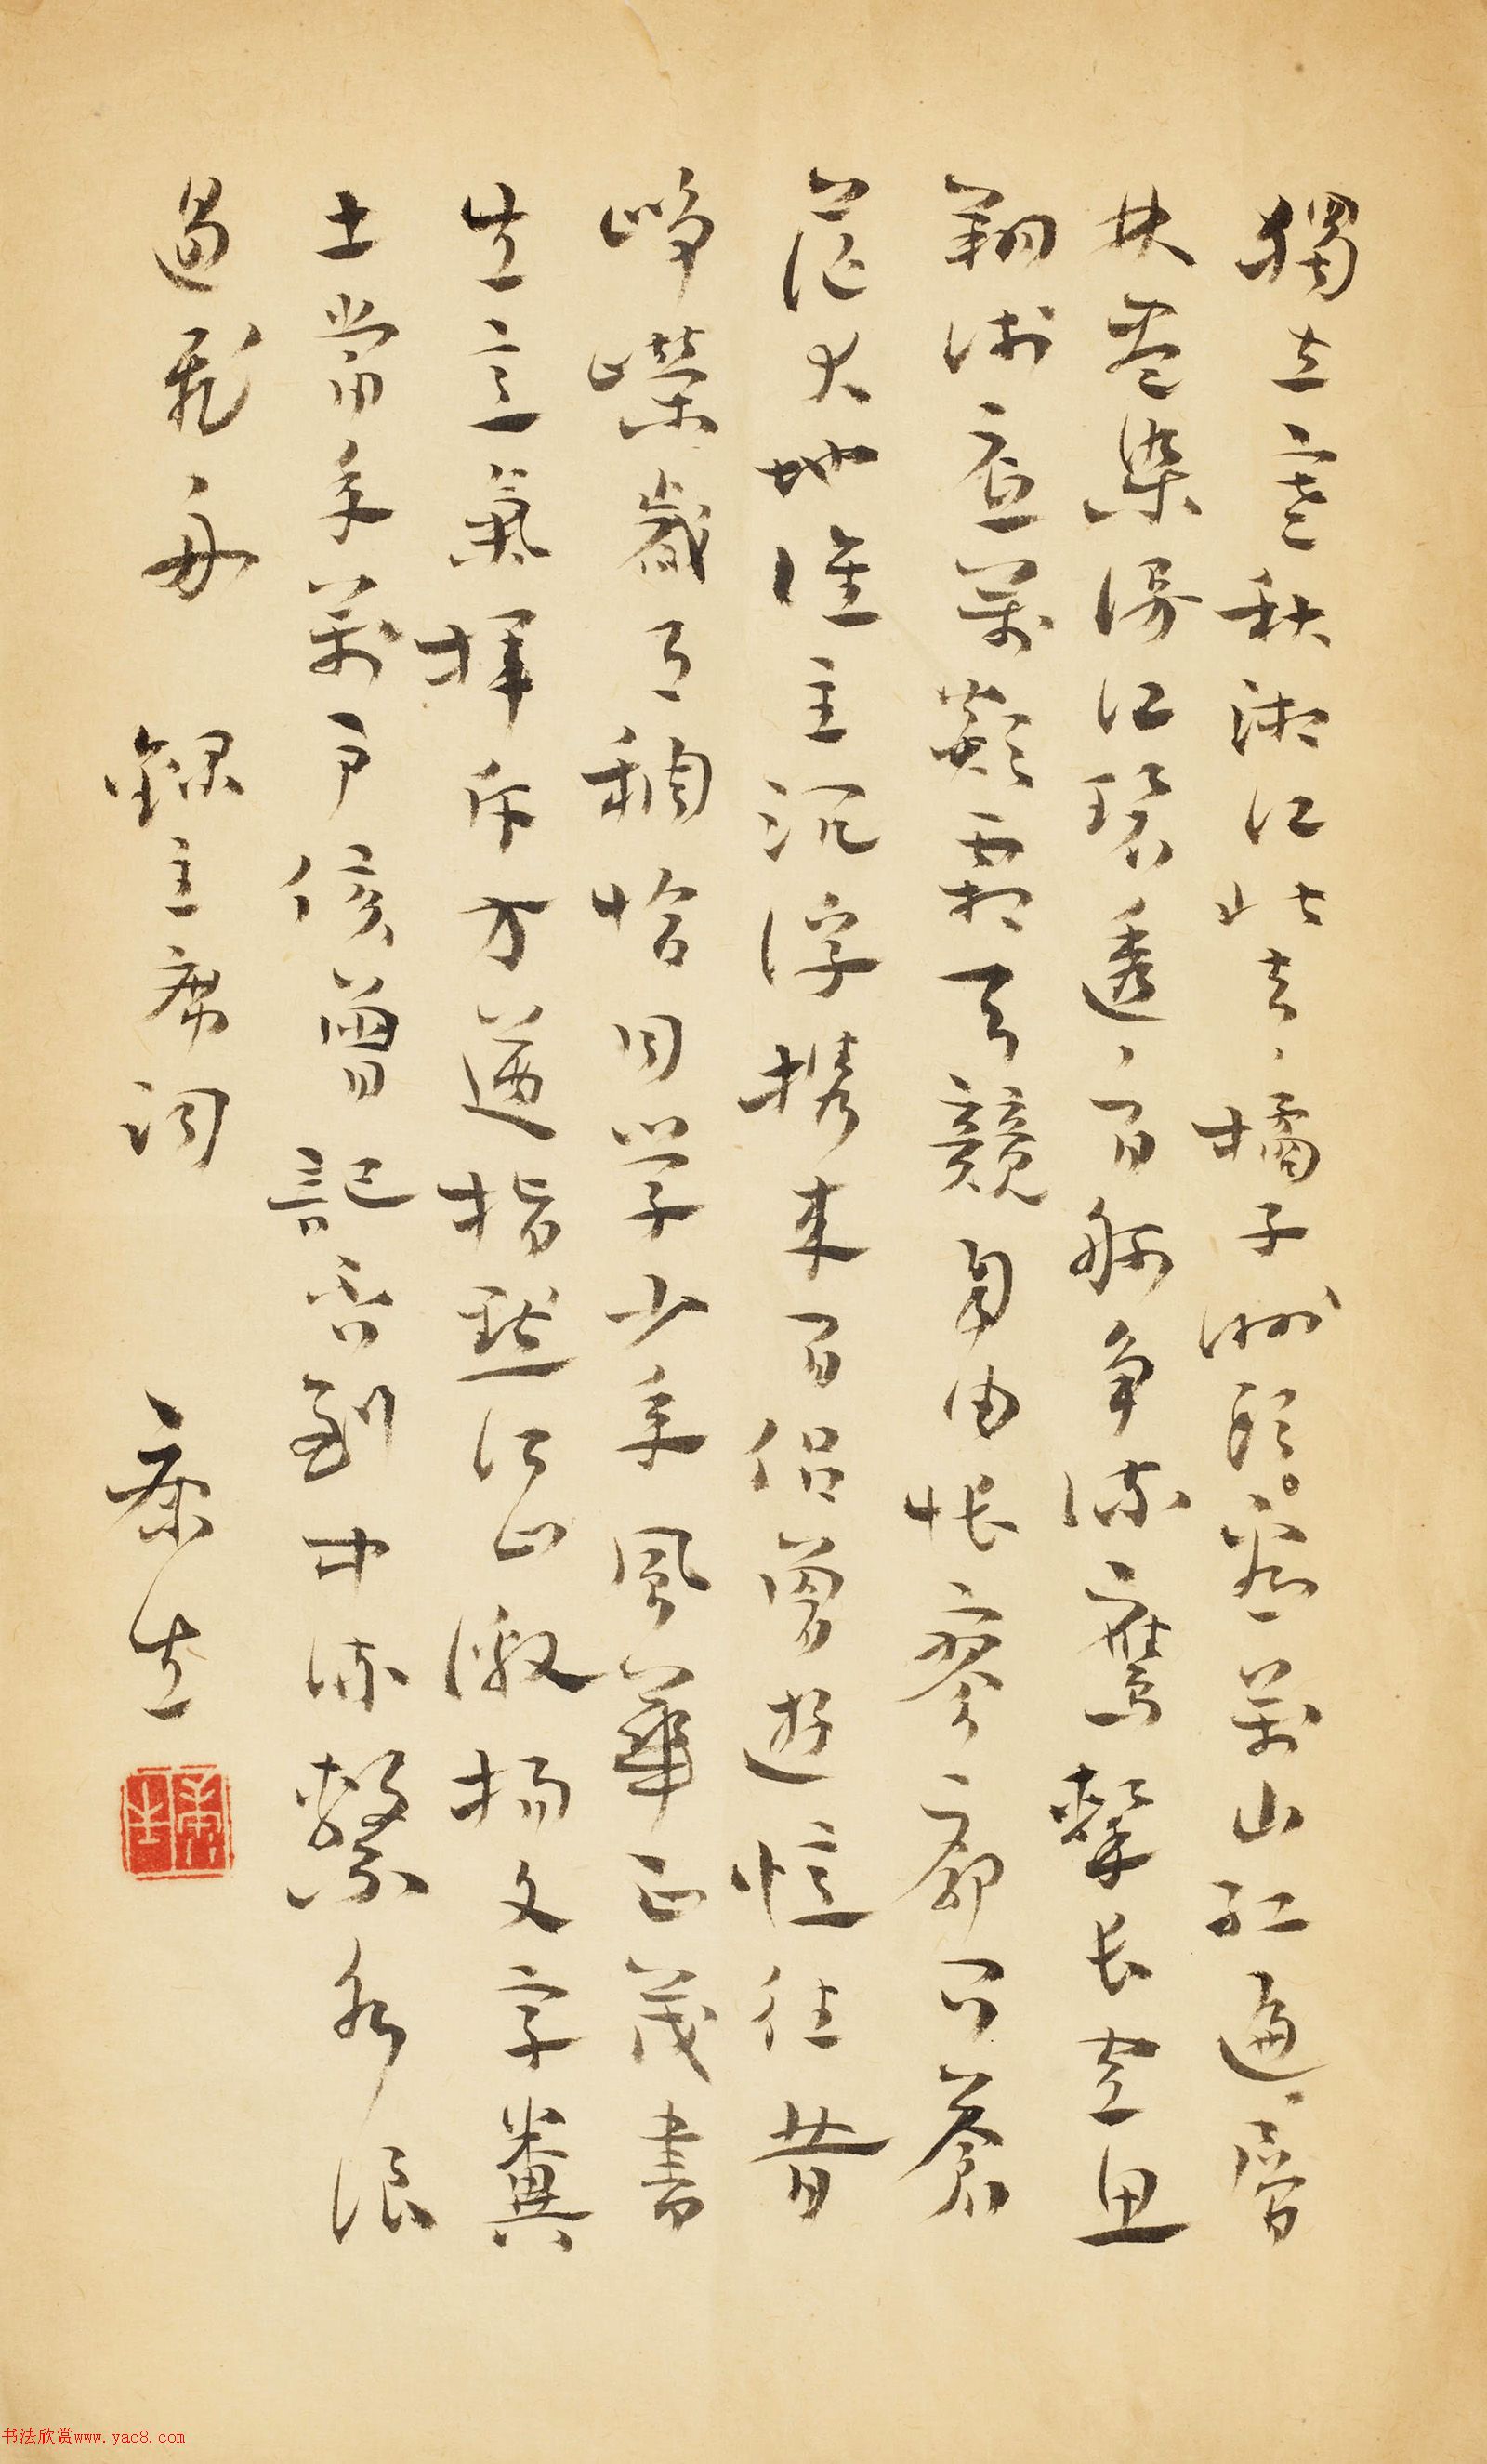 獨立寒秋湘江北去橘子洲頭看萬山紅遍層
林盡染漫江碧透百舸争流鷹擊长空魚
翔淺底萬類霜天競自由悵寥廓問蒼
茫大地谁主沉浮携来百侣曾遊憶往昔
崢嶸歲月稠恰同学少年風華正茂書
生意氣揮斥方遒指點江山激揚文字糞
土當年萬户侯曾記否到中流擊水浪
遏飛舟 錄主席词 康生
康生
书法欣赏www.yac8.com